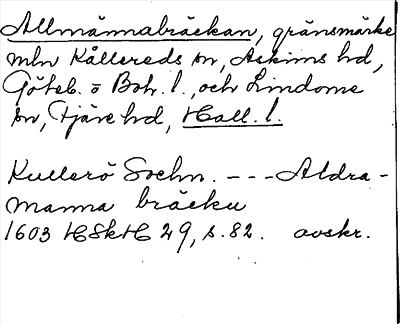 Allmännabräckan, gränsmärke
mln Kållereds sn, Askims hd,
Göteb. o Boh. l., och Lindome
sn, Fjäre hd, Hall. l.
Kullerö Sochn. - - - Aldra-
manna bräcku
1603 HSkH 29, s. 82. avskr.